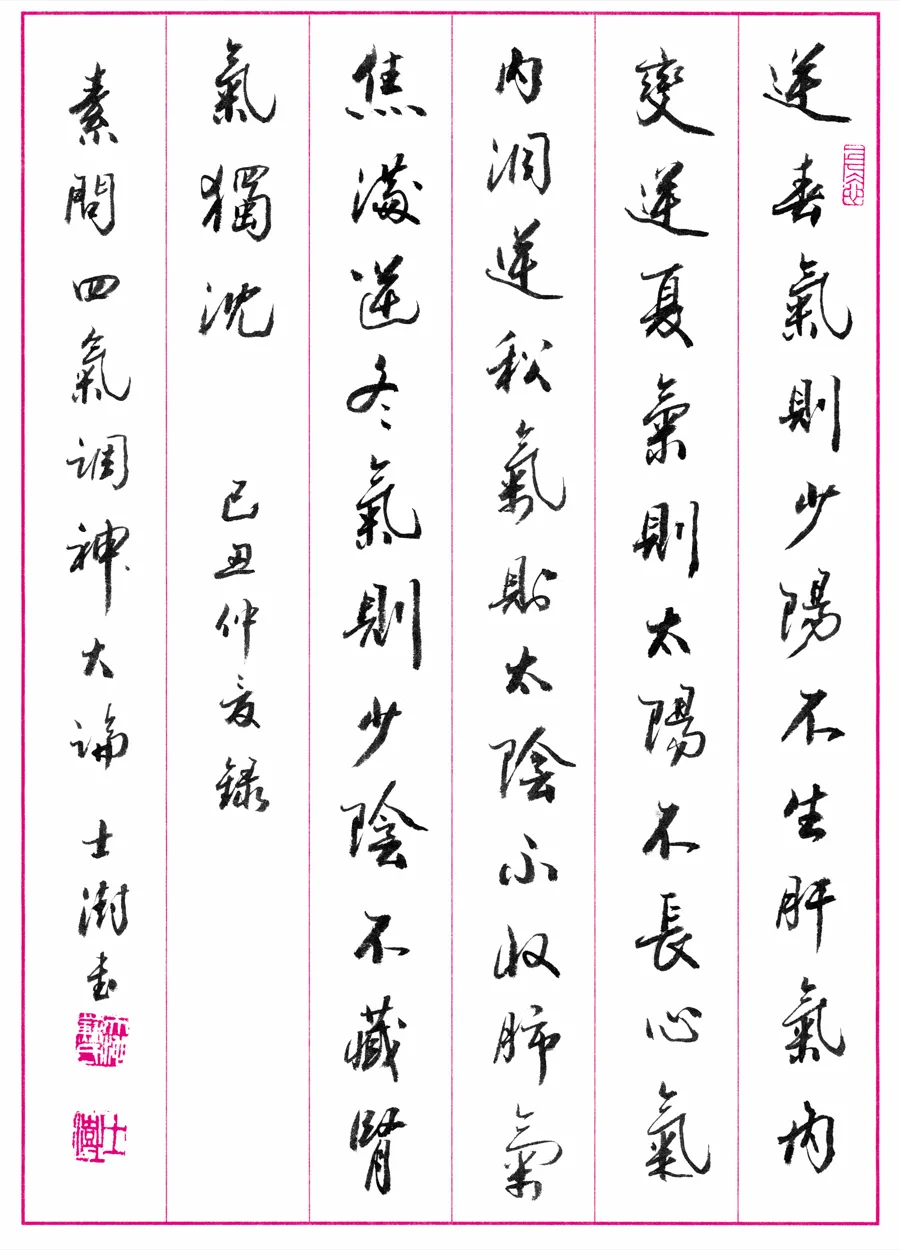 逆春氣則少陽不生肝氣內
變逆夏氣則太陽不長心氣
內洞逆秋氣則太陰不收肺氣
焦滿逆冬氣則少陰不藏腎
氣獨沈 己丑仲夏錄
素問四氣調神大論 士澍書
士澍